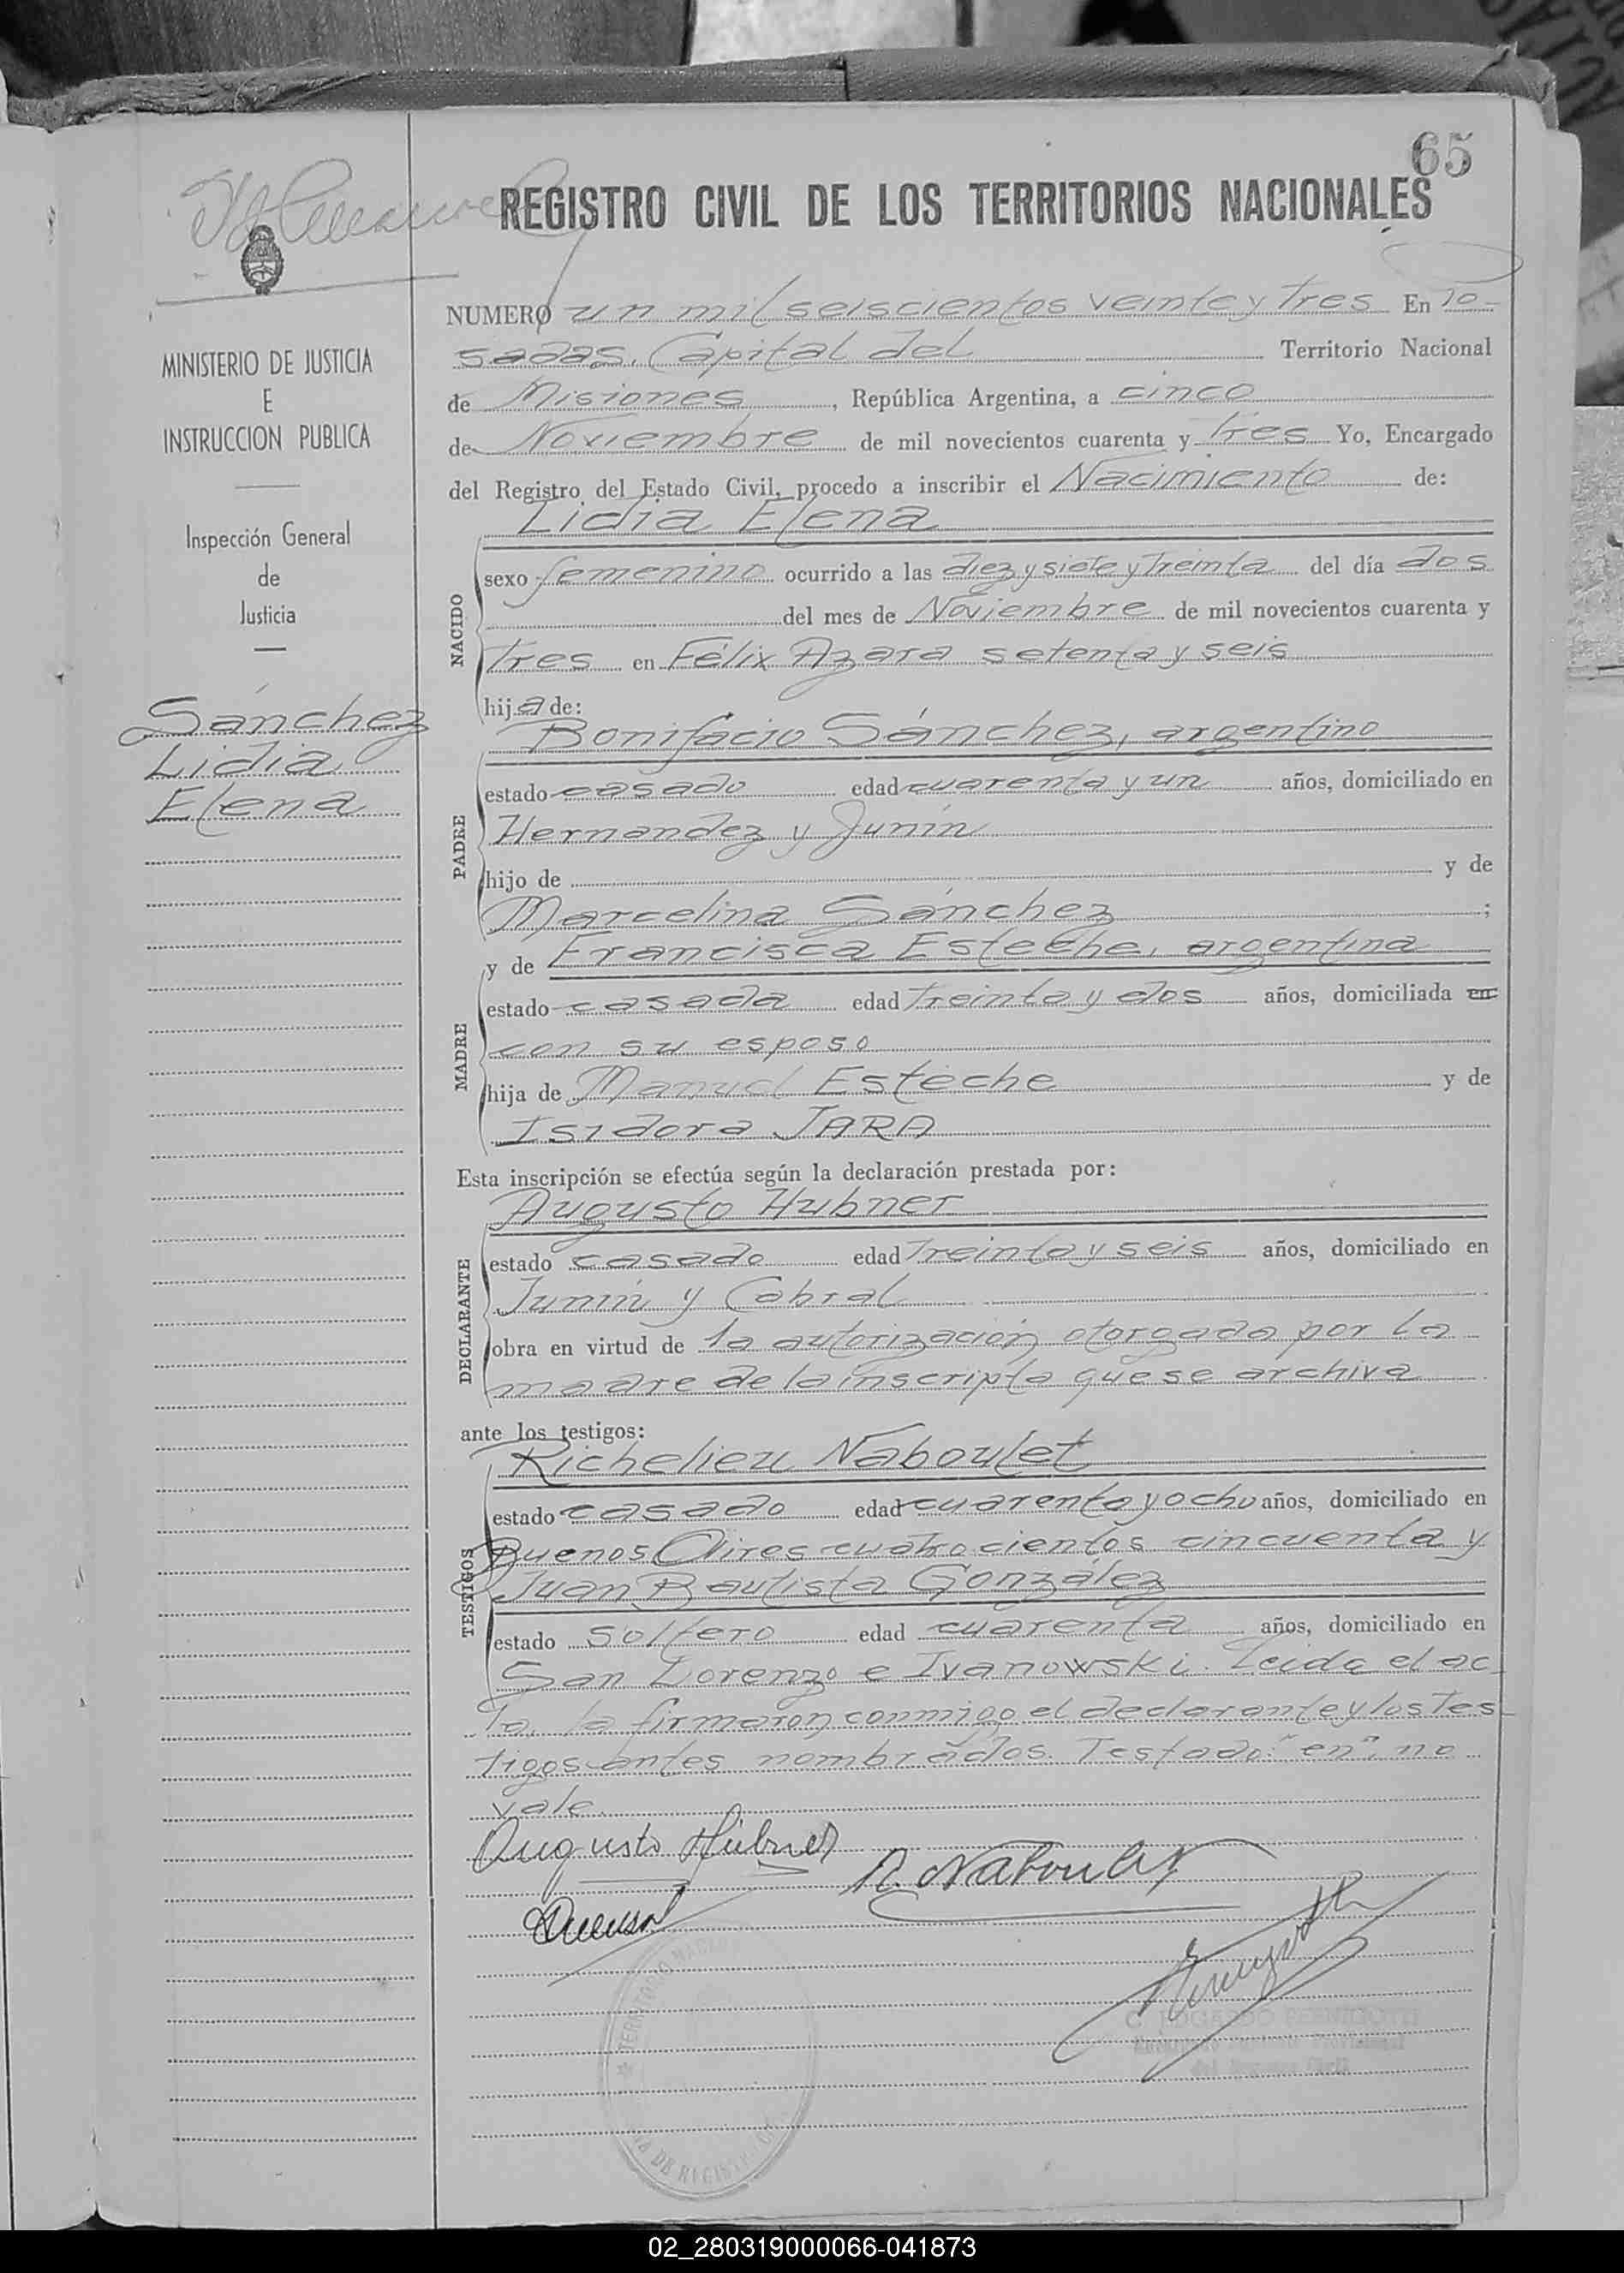 65
REGISTRO CIVIL DE LOS TERRITORIOS NACIONALES
MINISTERIO DE JUSTICIA
E
INSTRUCCION PUBLICA
Inspección General
de
Justicia
Sánchez
Lidia
Elena
NUMERO un mil seiscientos veinte y tres En Po-
sadas, Capital del Territorio Nacional
de Misiones, República Argentina, a cinco
de Noviembre de mil novecientos cuarenta y tres Yo, Encargado
del Registro del Estado Civil, procedo a inscribir el Nacimiento de:
Lidia Elena
NACIDO
sexo femenino ocurrido a las diez y siete y treinta del día dos
del mes de Noviembre de mil novecientos cuarenta y
tres en Félix Azara setenta y seis
hija de:
Bonifacio Sánchez, argentino
PADRE
estado casado edad cuarenta y un años, domiciliado en
Hernandez y Junín
hijo de y de
Marcelina Sánchez;
y de Francisca Esteche, argentina
MADRE
estado casada edad treinta y dos años, domiciliada en
con su esposo
hija de Manuel Esteche y de
Isidora JARA
Esta inscripción se efectúa según la declaración prestada por:
Augusto Hubner
DECLARANTE
estado casado edad treinta y seis años, domiciliado en
Junín y Cabral
obra en virtud de la autorización otorgada por la
madre de la inscripta que se archiva
ante los testigos:
Richelieu Naboulet
TESTIGOS
estado casado edad cuarenta y ocho años, domiciliado en
Buenos Aires cuatrocientos cincuenta y
Juan Bautista González
estado soltero edad cuarenta años, domiciliado en
San Lorenzo e Ivanowski. Leida el ac
ta, la firmaron conmigo el declarante y los tes
tigos antes nombrados. Testado: "en" no
vale.
Augusto Hübner
R. Naboulet
TERRITORIO NACIO
DE REGIS
C. EDGARDO PERNIGOTTI
del Registro Civil
02_280319000066-041873